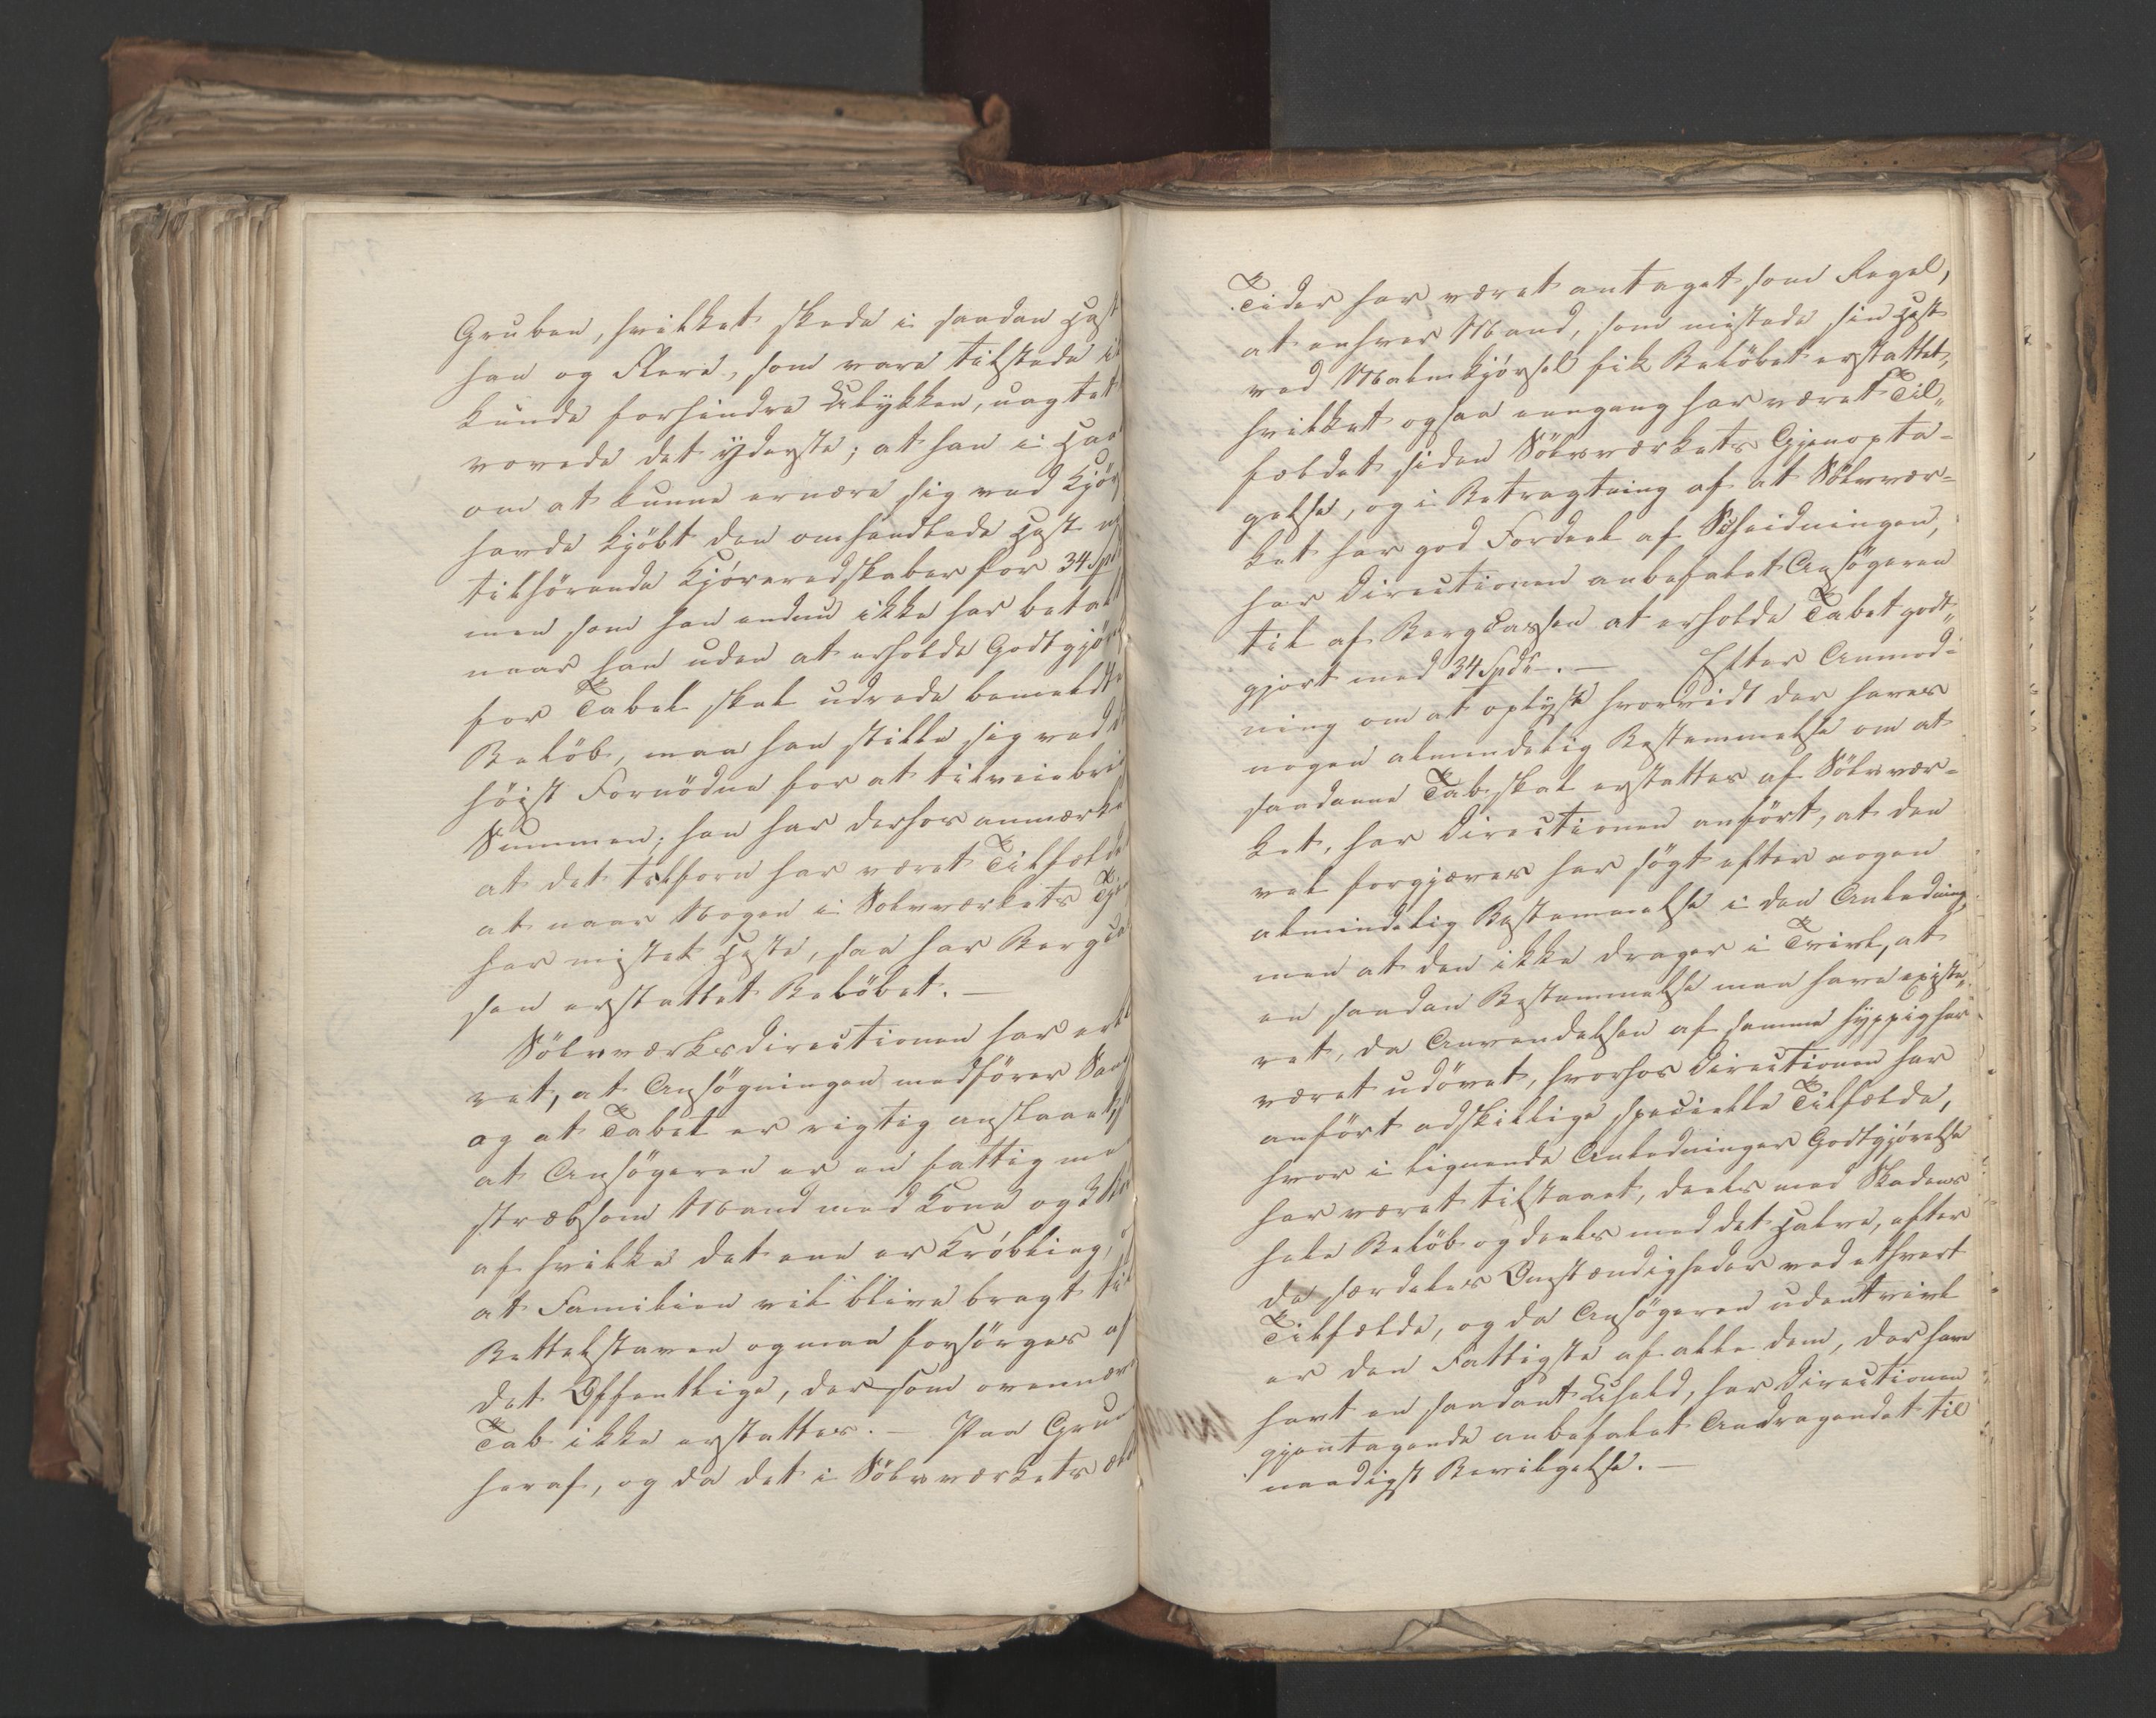 Gruben, hvilket skede i saadan Hast
han og Flere, som vare tilstede ik
kunde forhindre Ulykken, uagtet
vovede det yderste; at han i Haa
om at kunne ernære sig ved Kjør
havde kjöbt den omhandlede Hest m
tilhörende Kjöreredskaber for 34 Spd
men som han endnu ikke har betalt
naar han uden at erholde Godtgjör
for Tabet skal udrede bemeldte
Belöb, maa han stille sig ved d
höist Fornödne for at tilveiebri
Summen; han har derhos anmærke
at det tilforn har været Tilfælde
at naar Nogen i Sølvværkets Tje
har mistet Heste, saa har Bergca
sen erstattet Belöbet. —
Sölvværksdirectionen har erkl
ret, at Ansögningen medförer San
og at Tabet er rigtig anslaaet,
at Ansögeren er en fattig me
stræbsom Mand med Kone og 3 Bö
af hvilke det ene er Kröbling,
at Familien vil blive bragt til
Bettelstaven og maa forsörges af
det Offentlige, dersom ovennæv
Tab ikke erstattes. — Paa Grun
heraf, og da det i Sölvværkets æld
Tider har været antaget som Regel,
at enhver Mand, som mistede sin Hest
ved Malmkjörsel fik Belöbet erstattet,
hvilket ogsaa eengang har været Til„
fældet siden Sölvværkets Gjenopta-
gelse, og i Betragtning af at Sölvvær-
ket har god Fordeel af Scheidningen,
har Directionen anbefalet Ansögeren
til af Bergcassen at erholde Tabet godt„
gjort med 34 Spdr. — Efter Anmod-
ning om at oplyse hvorvidt der haves
nogen almindelig Bestemmelse om at
saadanne Tab skal erstattes af Sölvvær-
ket, har Directionen anfört, at den
vel forgjæves har sögt efter nogen
almindelig Bestemmelse i den Anledning,
men at den ikke drager i Tvivl, at
en saadan Bestemmelse maa have existe„
ret, da Anvendelsen af samme hyppig har
været udövet, hvorhos Directionen har
anfört adskillige specielle Tilfælde,
hvor i lignende Anledninger Godtgjörelse
har været tilstaaet, deels med Skadens
hele Belöb og deels med det Halve, efter
de særdeles Omstændigheder ved ethvert
Tilfælde, og da Ansögeren udentvivl
er den Fattigste af alle dem, der have
havt en saadant Uheld, har Directionen
gjentagende anbefalet Andragendet til
naadigst Bevilgelse. —